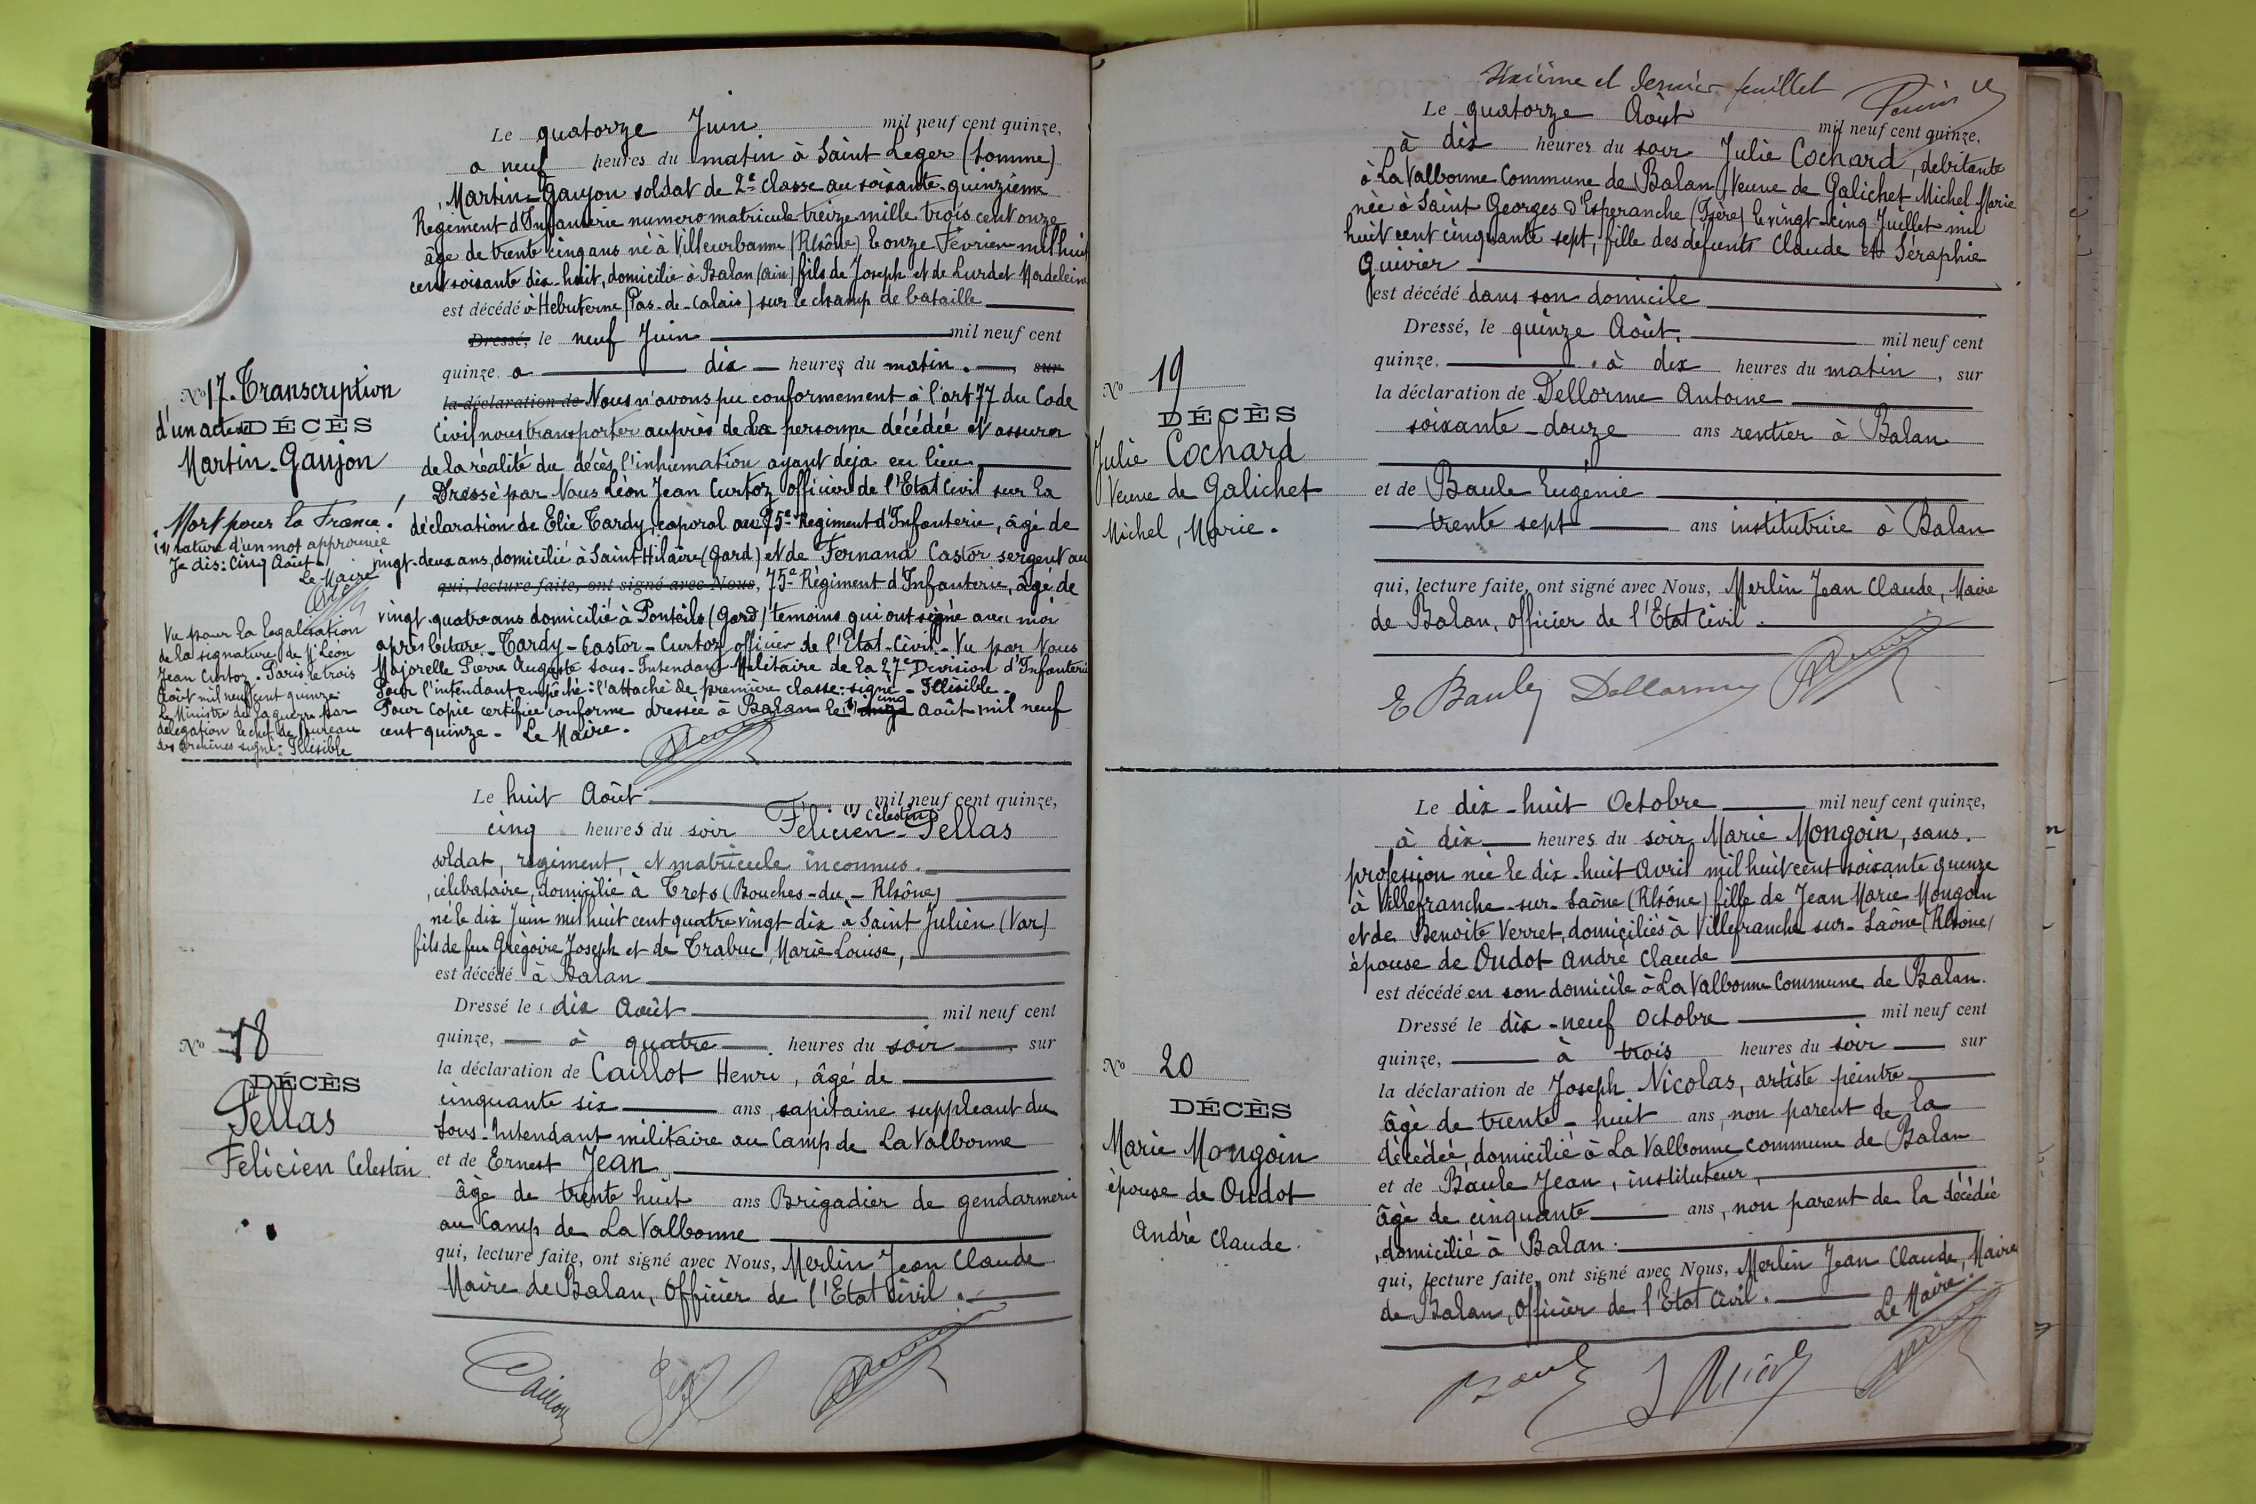 Le quatorze Juin mil neuf cent quinze,
a neuf heures du matin à Saint Leger (Somme)
Martin-Gaujon soldat de 2e classe au soixante-quinzième
Regiment d'Infanterie numero matricule treize mille trois cent onze
âge de trente cinq ans né à Villeurbanne (Rhône) le onze Février mil huit
cent soixante dix-huit, domicilié à Balan (Ain) fils de Joseph et de Lurdet Madeleine
est décédé à Hebuterne (Pas-de-Calais) sur le champ de bataille
Dressé, le neuf Juin mil neuf cent
quinze a dix heures du matin. sur
la déclaration de Nous n'avons pu conformement à l'art 77 du Code
Civil nous transporter auprès de la personne décédée et assurer
de la réalité du décès l'inhumation ayant deja eu lieu
Dressé par Nous Léon Jean Curtoz officier de l'Etat Civil sur la
déclaration de Elie Tardy, caporal au 75e Regiment d'Infanterie, âgé de
vingt-deux ans, domicilié à Saint Hilaire (Gard) et de Fernand Castor sergent au
qui, lecture faite, ont signé avec Nous, 75e Régiment d'Infanterie, âgé de
vingt quatre ans domicilié à Ponteils (Gard) temoins qui ont signé avec moi
après lecture - Tardy - Castor - Curtoz officier de l'Etat-Civil - Vu par Nous
Majorelle Pierre Auguste Sous-Intendant Militaire de la 27e Division d'Infanterie
Pour l'intendant empêché: l'attaché de première classe: signé - Illisible -
Pour Copie certifiée conforme dressée à Balan le (1) cinq Août mil neuf
cent quinze - Le Maire.
No 17. Transcription
d'un acte de DÉCÈS
Martin-Gaujon
Mort pour la France!
(1) rature d'un mot approuvée
Je dis: Cinq Août
Le Maire
Vu pour la legalisation
de la signature de Mr Léon
Jean Curtoz. Paris le trois
Août mil neuf cent quinze
Le Ministre de la guerre par
délégation le chef du bureau
des archives signé: Illisible
Le huit Août mil neuf cent quinze,
cinq heures du soir Félicien (1) Célestin Pellas
soldat, regiment, et matricule inconnus.
célibataire, domicilié à Trets (Bouches-du-Rhône)
né le dix Juin mil huit cent quatre vingt-dix à Saint Julien (Var)
fils de feu Grégoire Joseph et de Trabuc, Marie Louise,
est décédé à Balan
Dressé le dix Août mil neuf cent
quinze, à quatre heures du soir sur
la déclaration de Caillot Henri, âgé de
cinquante six ans, capitaine suppleant du
Sous-Intendant militaire au Camp de La Valbonne
et de Ernest Jean
âgé de trente huit ans Brigadier de gendarmerie
au Camp de La Valbonne
qui, lecture faite, ont signé avec Nous, Merlin Jean Claude
Maire de Balan, Officier de l'Etat Civil.
No 18
DÉCÈS
Pellas
Felicien Celestin
Caillot
Sixième et dernier feuillet
Le quatorze Août mil neuf cent quinze,
à dix heures du soir Julie Cochard, debitante
à La Valbonne Commune de Balan, Veuve de Galichet Michel Marie
née à Saint Georges d'Esperanche (Isère) le vingt-cinq Juillet mil
huit cent cinquante sept, fille des defunts Claude et Séraphie
Quivier
est décédé dans son domicile
Dressé, le quinze Août. mil neuf cent
quinze. à dix heures du matin, sur
la déclaration de Dellorme Antoine
soixante-douze ans rentier à Balan
et de Baule Eugénie
trente sept ans institutrice à Balan
qui, lecture faite, ont signé avec Nous, Merlin Jean Claude, Maire
de Balan, Officier de l'Etat Civil.
E Baule Dellorme
No 19
DÉCÈS
Julie Cochard
Veuve de Galichet
Michel, Marie.
Le dix-huit Octobre mil neuf cent quinze,
à dix heures du soir Marie Mongoin, sans
profession née le dix-huit Avril mil huit cent soixante quinze
à Villefranche-sur-Saône (Rhône) fille de Jean Marie Mongoin
et de Benoite Verret, domiciliés à Villefranche sur-Saône (Rhône)
épouse de Oudot André Claude
est décédé en son domicile à La Valbonne Commune de Balan.
Dressé le dix-neuf Octobre mil neuf cent
quinze, à trois heures du soir sur
la déclaration de Joseph Nicolas, artiste peintre
âgé de trente-huit ans, non parent de la
décédée, domicilié à La Valbonne commune de Balan
et de Baule Jean, instituteur,
âgé de cinquante ans, non parent de la décédée
domicilié à Balan.
qui, lecture faite, ont signé avec Nous, Merlin Jean Claude, Maire
de Balan, Officier de l'Etat Civil.
Le Maire.
No 20
DÉCÈS
Marie Mongoin
épouse de Oudot
André Claude.
Baule J Nicolas